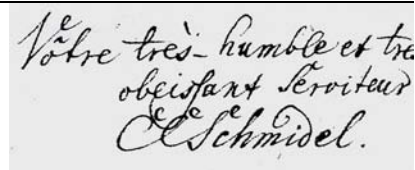 Vôtre très-humble et tre
obeissant Serviteur
CCSchmidel.